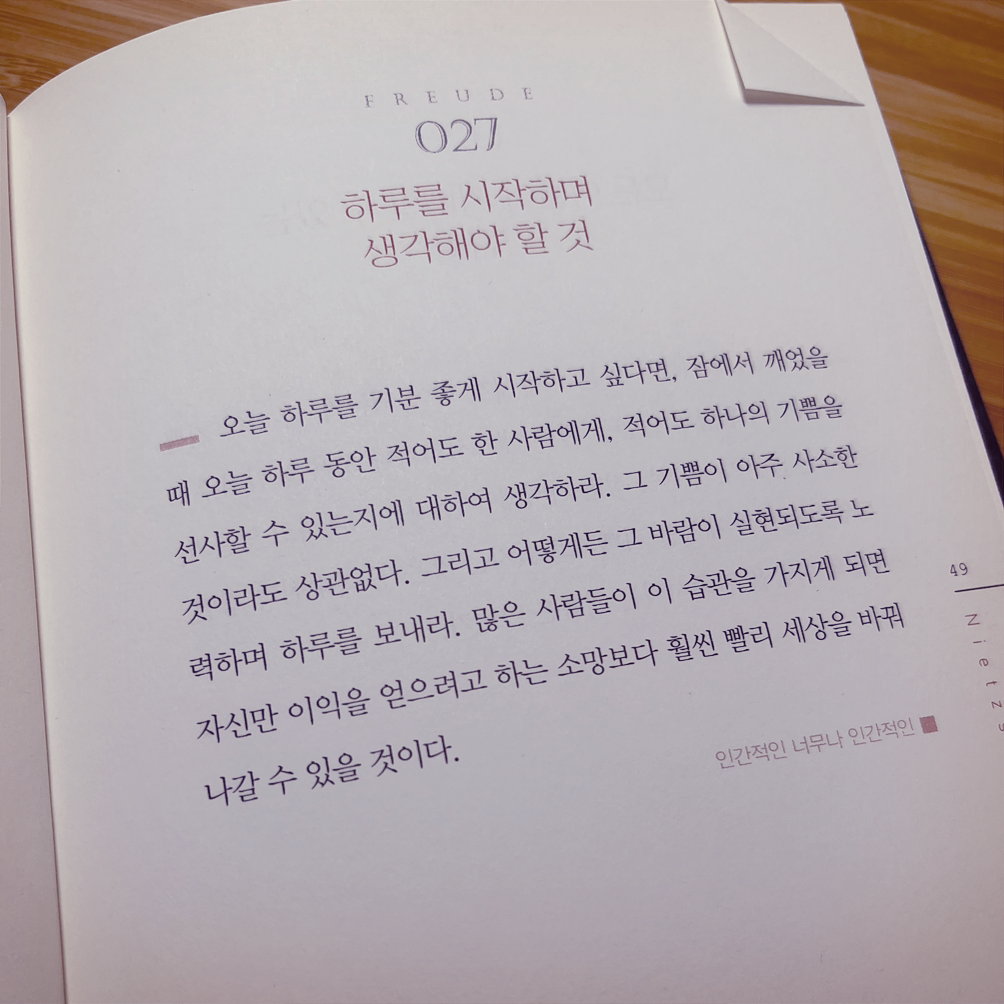 FREUDE
027
하루를 시작하며
생각해야 할 것
오늘 하루를 기분 좋게 시작하고 싶다면, 잠에서 깨었을
때 오늘 하루 동안 적어도 한 사람에게, 적어도 하나의 기쁨을
선사할 수 있는지에 대하여 생각하라. 그 기쁨이 아주 사소한
것이라도 상관없다. 그리고 어떻게든 그 바람이 실현되도록 노
력하며 하루를 보내라. 많은 사람들이 이 습관을 가지게 되면
자신만 이익을 얻으려고 하는 소망보다 훨씬 빨리 세상을 바꿔
나갈 수 있을 것이다.
인간적인 너무나 인간적인
49
Nietzs